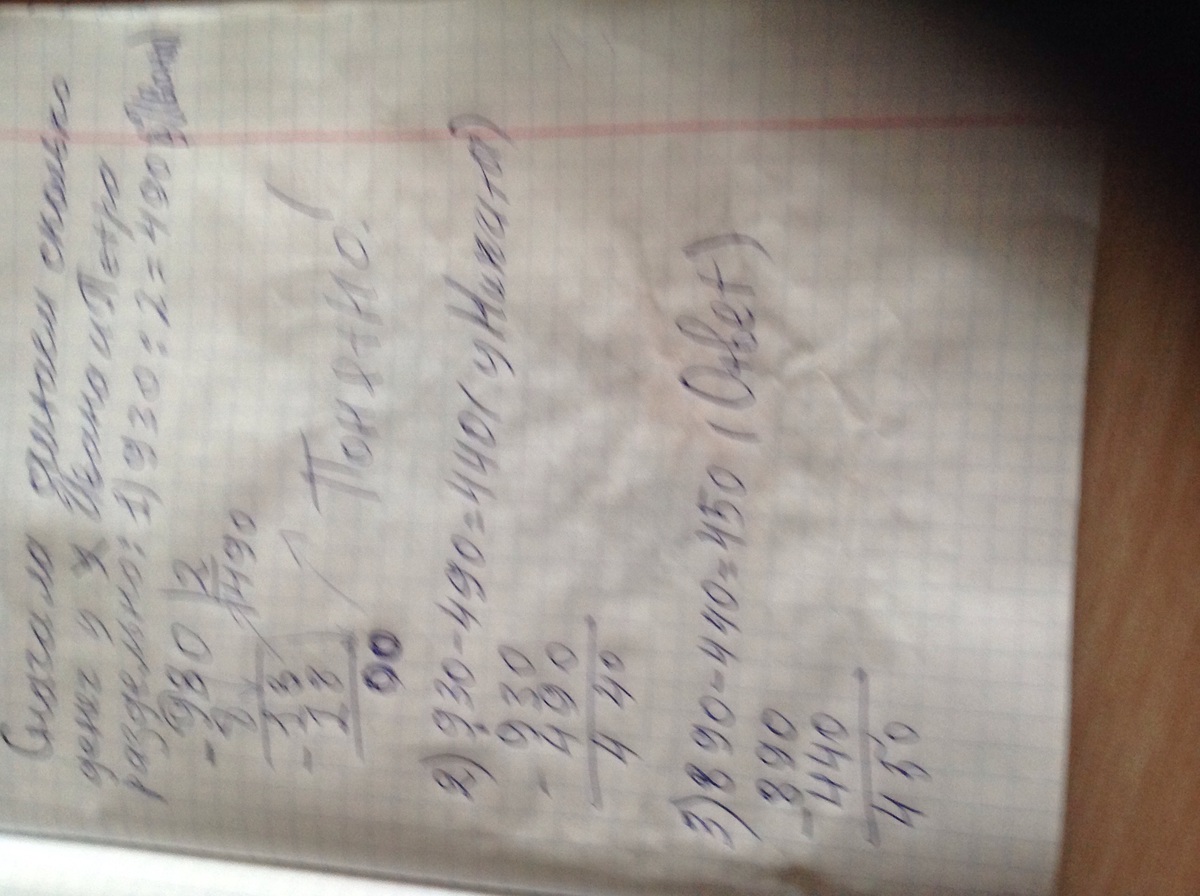 Сначала Узнаем сколько
денег у Ивана и Петра
раздельно: 1) 930 : 2 = 490
- 930 | 2
8 490
13
- 18
90
Понятно!
2) 930-490=440 г у Нипата)
- 930
490
440
3) 890-440=450 (Ответ)
- 890
440
450